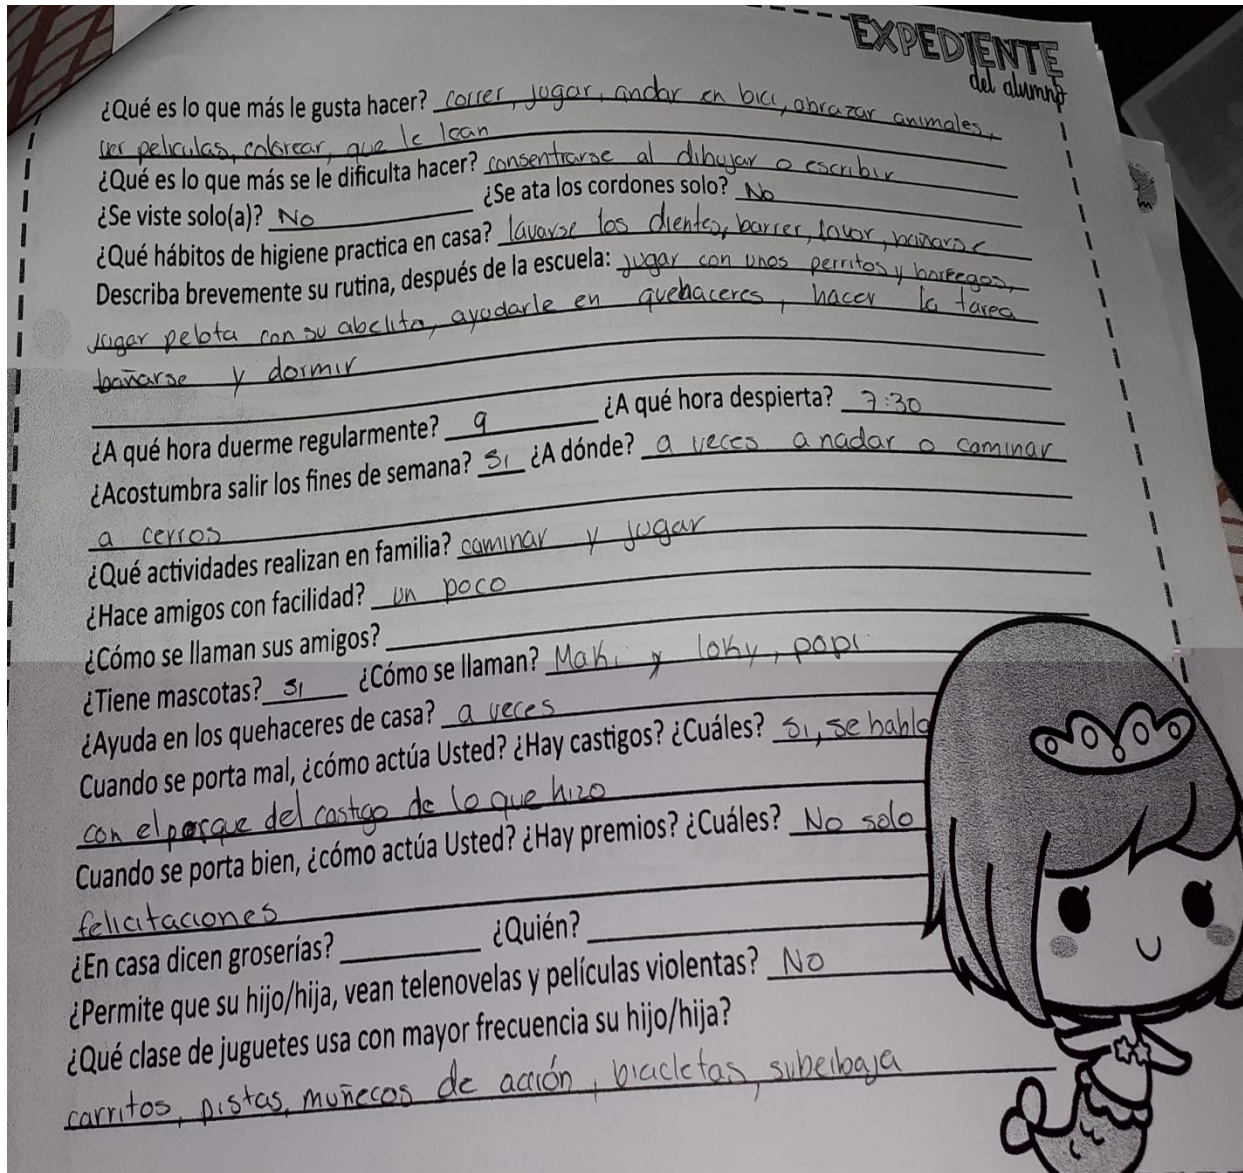 EXPEDIENTE
del alumno
¿Qué es lo que más le gusta hacer? correr, jugar, andar en bici, abrazar animales,
ver peliculas, colorear, que le lean
¿Qué es lo que más se le dificulta hacer? consentrarse al dibujar o escribir
¿Se viste solo(a)? No ¿Se ata los cordones solo? No
¿Qué hábitos de higiene practica en casa? lavarse los dientes, barrer, lavar, bañarse
Describa brevemente su rutina, después de la escuela: jugar con unos perritos y borregos,
jugar pelota con su abelito, ayudarle en quehaceres, hacer la tarea
bañarse y dormir
¿A qué hora duerme regularmente? 9 ¿A qué hora despierta? 7:30
¿Acostumbra salir los fines de semana? Si ¿A dónde? a veces a nadar o caminar
a cerros
¿Qué actividades realizan en familia? caminar y jugar
¿Hace amigos con facilidad? un poco
¿Cómo se llaman sus amigos?
¿Tiene mascotas? si ¿Cómo se llaman? Maki y loky, popi
¿Ayuda en los quehaceres de casa? a veces
Cuando se porta mal, ¿cómo actúa Usted? ¿Hay castigos? ¿Cuáles? Si, se habla
con el porque del castigo de lo que hizo
Cuando se porta bien, ¿cómo actúa Usted? ¿Hay premios? ¿Cuáles? No solo
felicitaciones
¿En casa dicen groserías? ¿Quién?
¿Permite que su hijo/hija, vean telenovelas y películas violentas? No
¿Qué clase de juguetes usa con mayor frecuencia su hijo/hija?
carritos, pistas, muñecos de acción, bicicletas, subeibaja